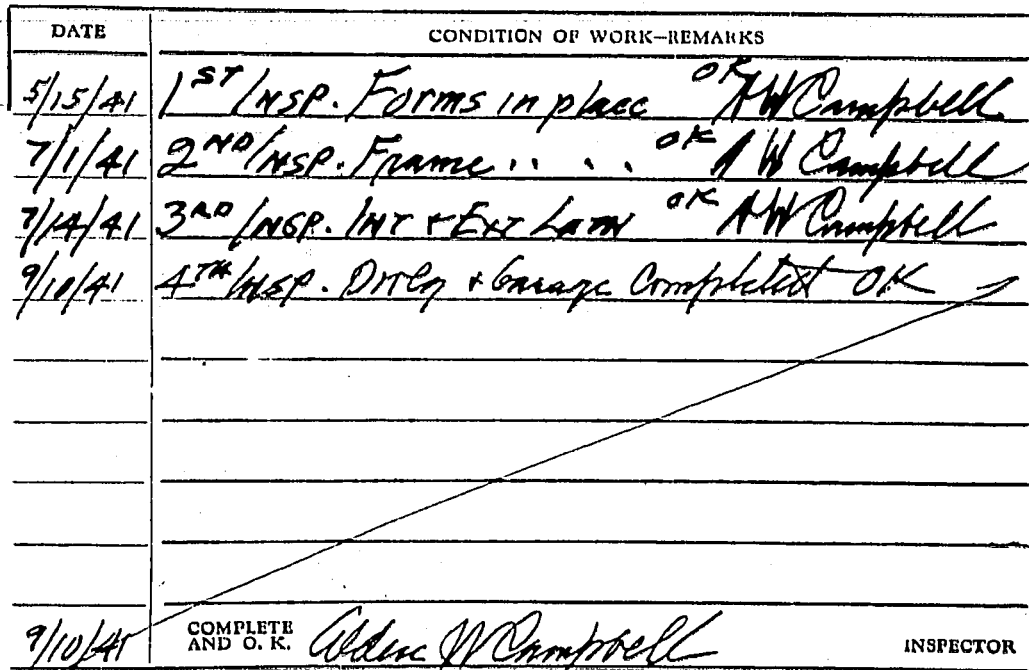 DATE CONDITION OF WORK—REMARKS
5/15/41 1ST INSP. Forms in place OK AW Campbell
7/1/41 2ND INSP. Frame " " OK A W Campbell
7/14/41 3RD INSP. INT + EXT LATH OK AW Campbell
9/10/41 4TH INSP. Dwlg + Garage Completed OK
9/10/41 COMPLETE AND O. K. Alden W Campbell INSPECTOR